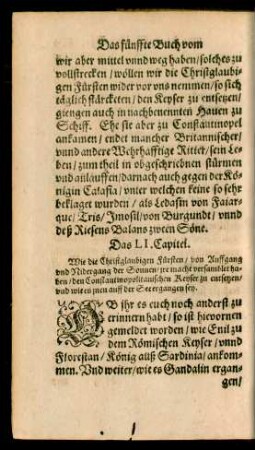 Das fünffte Buch vom
wir aber mittel vnnd weg haben/solches zu
vollstrecken/wöllen wir die Christglaubi-
gen Fürsten wider vor vns nemmen/so sich
täglich stärcketen/den Keyser zu entsetzen/
giengen auch in nachbenennten Hauen zu
Schiff. Ehe sie aber zu Constantinopel
ankamen/endet mancher Britannischer/
vnnd andere Wehrhafftige Ritter/sein Le-
ben/zum theil in obgeschriebnen stürmen
vnd anläuffen/darnach auch gegen der Kö-
nigin Calafia/vnter welchen keine so sehr
beklaget wurden/als Ledasin von Faiar-
que/Tris/Imosil/von Burgundt/vnnd
deß Riesens Balans zween Söne.
Das LI. Capitel.
Wie die Christglaubigen Fürsten/von Auffgang
vnd Nidergang der Sonnen/jre macht versamblet ha-
ben/den Constantinopolitanischen Keyser zu entsetzen/
vnd wie es jnen auff der See ergangen sey.
OB jhr es euch noch anderst zu
erinnern habt/so ist hievornen
gemeldet worden/wie Enil zu
dem Römischen Keyser/vnnd
Florestan/König auß Sardinia/ankom-
men. Vnd weiter/wie es Gandalin ergan-
gen/